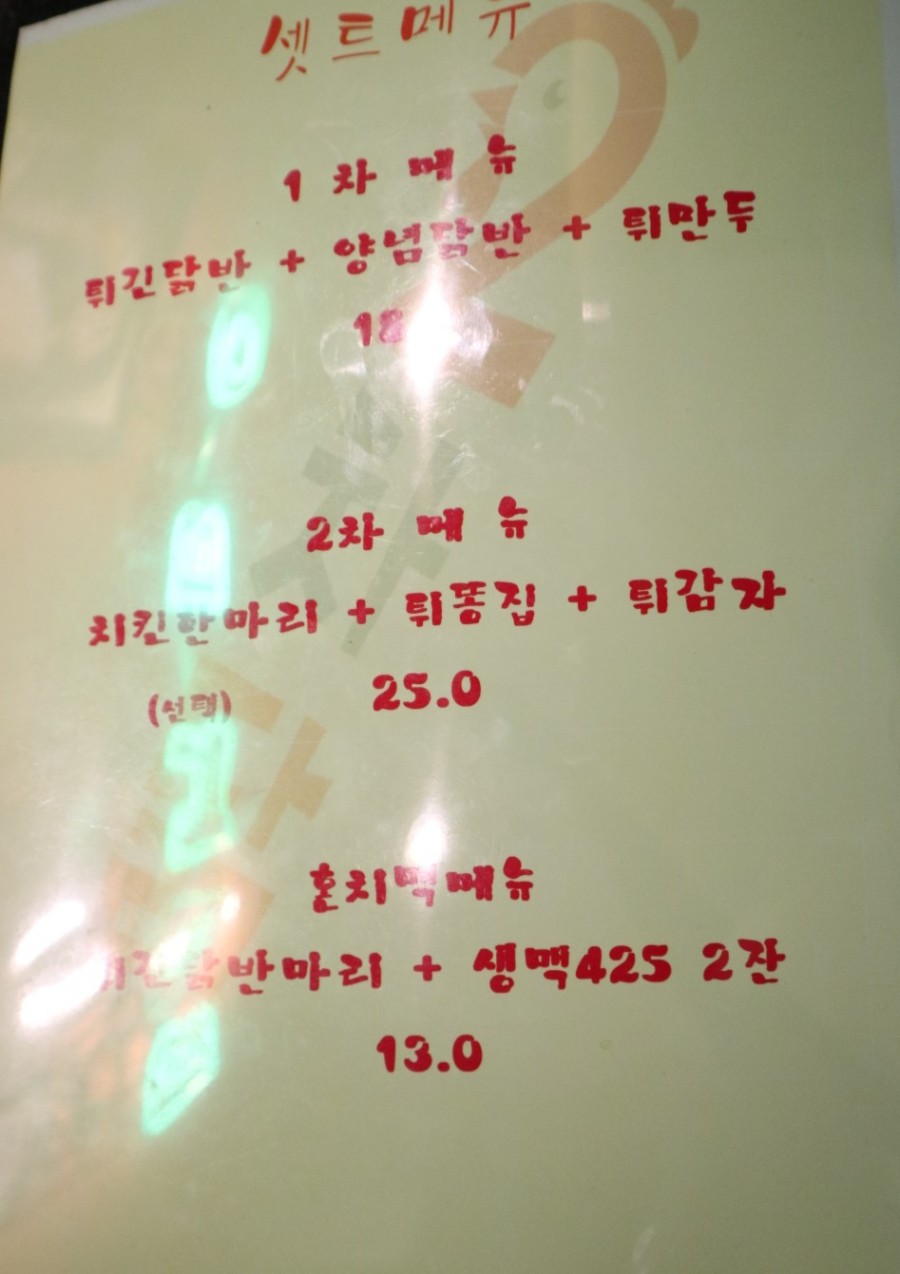 셋트메뉴
1차 메뉴
튀긴닭반 + 양념닭반 + 튀만두
2차 메뉴
치킨한마리 + 튀똥집 + 튀감자
(선택) 25.0
혼치맥메뉴
튀긴닭반마리 + 생맥425 2잔
13.0